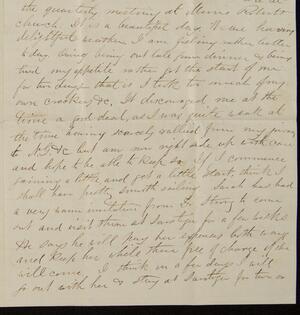 the quarterly meeting at
church. It is a beautiful day. We are having
delightful weather. I am feeling rather better
to day. being out late from dinner & being
tired my appetite rather got the start of me
for two days that is I took too much of my
own cooking &c. It discouraged me at the
time a good deal, as I was quite weak at
the time having scarcely rallied from my journey
to N.Y. &c but am now right side up with care
and hope to be able to keep so. If I commence
gaining a little and get a little start, think I
shall have pretty smooth sailing. Sarah has had
a very warm invitation from Dr Strong to come
out and visit them at Saratoga for a few weeks
He says he will pay her expenses both ways
and keep her while there free of charge if she
will come. I think in a few days I will
go out with her & stay at Saratoga for two or